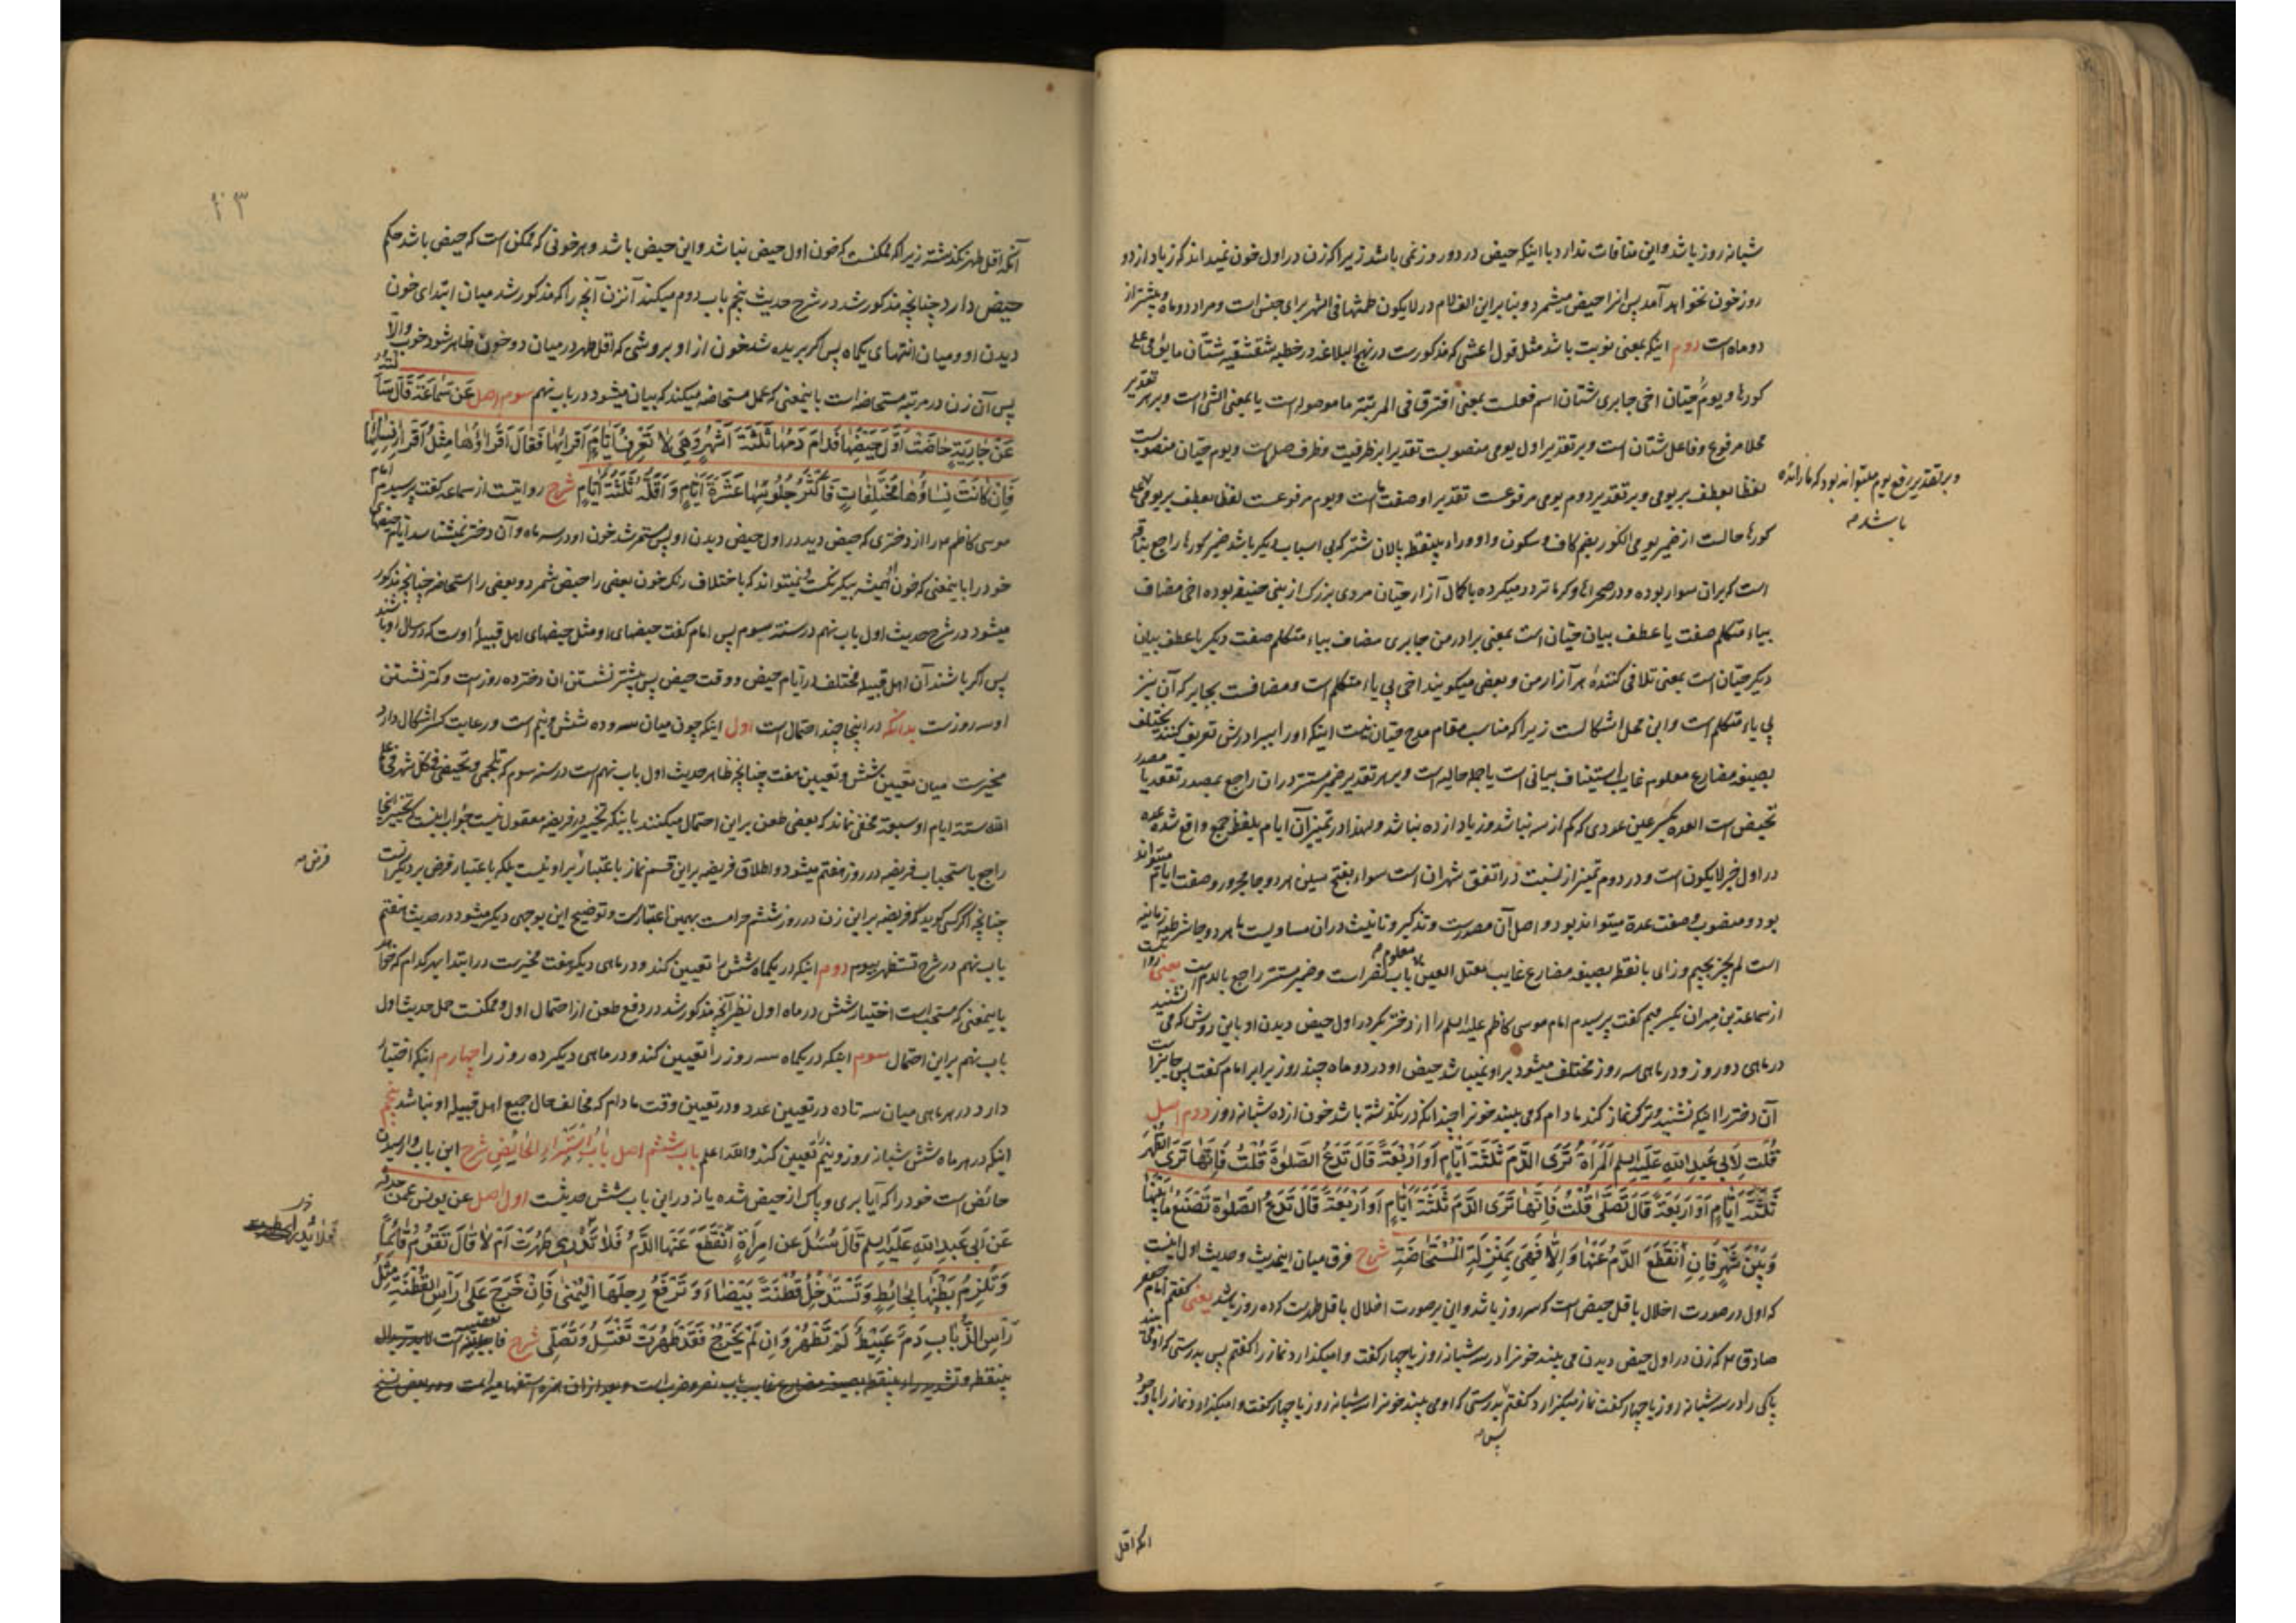 شبانه روز باشد و این منافات ندارد با اینکه حیض در دو روز نمی باشد زیرا که زن در اول خون نمیداند که زیاد از دو
روز خون نخواهد آمد پس انرا حیض میشمرد و بنا براین الف لام در لایکون طمثها فی الشهر برای جنس است و مراد دو ماه و بیشتر از
دو ماه است دوم اینکه بمعنی نوبت باشد مثل قول اعشی که مذکورست در نهج البلاغه در خطبه شقشقیه شتان ما یومی علی
کورها و یوم حیان اخی جابری شتان اسم فعلست بمعنی افترق فی المرتبة ما موصوله است یا بمعنی الشئ است و بر هر تقدیر
محلا مرفوع و فاعل شتان است و بر تقدیر اول یومی منصوبست تقدیرا بر ظرفیت و ظرف صله است و یوم حیان منصوبست
لفظا بعطف بر یومی و بر تقدیر دوم یومی مرفوعست تقدیرا و صفت ما است و یوم مرفوعست لفظا بعطف بر یومی علی
و بر تقدیر رفع یوم میتواند بود که ما زائده
باشد مه
کورها حالست از ضمیر یومی الکور بضم کاف و سکون واو و راء بینقطه پالان شتر که بی اسباب دیگر باشد ضمیر کورها راجع بناقه
است که بران سوار بوده و در صحراها و کرما تردد میکرده با کمال آزار حیان مردی بزرک از بنی حنیفه بوده اخی مضاف
بیاء متکلم صفت یا عطف بیان حیان است بمعنی برادر من جابری مضاف بیاء متکلم صفت دیگر یا عطف بیان
دیگر حیان است بمعنی تلافی کننده هر آزار من و بعضی میکویند اخی بی یاء متکلم است و مضافست بجابر که آن نیز
بی یاء متکلم است و این محل اشکالست زیرا که مناسب مقام مدح حیان نیست اینکه او را ببرادرش تعریف کنند یختلف
بصیغه مضارع معلوم غایب استیناف بیانی است یا جمله حالیه است و بر هر تقدیر ضمیر مستتر دران راجع بمصدر تقعد یا مصدر
تحیض است العدة بکسر عین عددی که کم از سه نباشد و زیاد از ده نباشد و لهذا در تمیز آن ایام بلفظ جمع واقع شده عدة
در اول خبر لایکون است و در دوم تمیز از نسبت در اتفق شهران است سواء بفتح سین هر دو جا مجرور و صفت ایام میتواند
بود و منصوب و صفت عدة میتواند بود و اصل آن مصدرست و تذکیر و تانیث دران مساویست ما هر دو جا شرطیه زمانیه
است لم یجز بجیم و زای با نقطه بصیغه مضارع غایب معلوم معتل العین باب نصر است و ضمیر مستتر راجع بالدم است یعنی روایت
از سماعة بن مهران بکسر میم گفت پرسیدم امام موسی کاظم علیه السلم را از دختر بکر در اول حیض دیدن او باین روش که می نشیند
در ماهی دو روز و در ماهی سه روز مختلف میشود بر او نمیباشد حیض او در دو ماه چند روز برابر امام گفت پس جایز است
آن دختر را اینکه نشیند و ترک نماز کند مادام که می بیند خونرا چندانکه در نگذشته باشد خون از ده شبانه روز دوم اصل
قُلتُ لِأَبی عَبدِ اللّهِ عَلَیهِ السلم المَرأةُ تَرَی الدَّمَ ثَلثَةَ أیَّامٍ أو أَربَعَةً قالَ تَدَعُ الصَّلوةَ قُلتُ فَإنَّها تَرَی الطُّهرَ
ثَلثَةَ أیَّامٍ أو أَربَعَةً قالَ تُصَلِّی قُلتُ فَإنَّها تَرَی الدَّمَ ثَلثَةَ أیَّامٍ أو أَربَعَةً قالَ تَدَعُ الصَّلوةَ تَصنَعُ ما بَینَها
وَ بَینَ شَهرٍ فَإنِ انقَطَعَ الدَّمُ عَنها وَ إلّا فَهِیَ بِمَنزِلَةِ المُستَحاضَةِ شرح فرق میان اینحدیث و حدیث اول اینست
که اول در صورت اخلال باقل حیض است که سه روز باشد و این بر صورت اخلال باقل طهرست که ده روز باشد یعنی گفتم امام جعفر
صادق را که زن در اول حیض دیدن می بیند خونرا در سه شبانه روز یا چهار گفت وامیکذارد نماز را گفتم پس بدرستی که او می بیند
پاکی را در سه شبانه روز یا چهار گفت نماز میگزارد گفتم بدرستی که او می بیند خونرا سه شبانه روز یا چهار گفت وامیکذارد نماز را با وجود
پس مه
انکه اقل
۲۳
آنکه اقل طهر نگذشته زیرا که ممکنست که خون اول حیض نباشد و این حیض باشد و هر خونی که ممکن است که حیض باشد حکم
حیض دارد چنانچه مذکور شد در شرح حدیث پنجم باب دوم میکند آنزن آنچه را که مذکور شد میان ابتدای خون
دیدن او و میان انتهای یکماه پس اکر بریده شد خون از او بروشی که اقل طهر در میان دو خون ظاهر شود خوب والّا
پس آن زن در مرتبه مستحاضه است باینمعنی که عمل مستحاضه میکند که بیان میشود در باب نهم سوم اصل عَن سَماعَةَ قالَ سَأَلتُهُ
عَن جارِیَةٍ حاضَت أَوَّلَ حَیضِها فَدامَ دَمُها ثَلثَةَ أشهُرٍ وَ هِیَ لا تَعرِفُ أیَّامَ أقرائِها فَقالَ أقراؤُها مِثلُ أقراءِ نِسائِها
فَإن کانَت نِساؤُها مُختَلِفاتٍ فَأکثَرُ جُلُوسِها عَشَرَةُ أیَّامٍ وَ أقَلُّهُ ثَلثَةُ أیَّامٍ شرح روایتست از سماعه گفت پرسیدم امام
موسی کاظم را از دختری که حیض دید در اول حیض دیدن او پس مستمر شد خون او در سه ماه و آن دختر نمیشناسد ایام حیضهای
خود را باینمعنی که خون همیشه بیکرنکست و نمیتواند که باختلاف رنک خون بعضی را حیض شمرد و بعضی را استحاضه چنانچه مذکور
میشود در شرح حدیث اول باب نهم در سنت سیوم پس امام گفت حیضهای او مثل حیضهای اهل قبیلهٔ اوست که در سال او باشند
پس اکر باشند آن اهل قبیله مختلف در ایام حیض و وقت حیض پس بیشتر نشستن ان دختر ده روزست و کمتر نشستن
او سه روزست بدانکه در اینجا چند احتمال است اول اینکه چون میان سه و ده شش و نیم است و رعایت کسر اشکال دارد
مخیرست میان تعیین شش و تعیین هفت چنانچه ظاهر حدیث اول باب نهم است در سنت سوم که تلجمی و تحیضی فی کل شهر فی علم
الله ستة ایام او سبعة مخفی نماند که بعضی طعن براین احتمال میکنند باینکه تخییر در فریضه معقول نیست جواب اینست که تخییر اینجا
راجع باستحباب فریضه در روز هفتم میشود و اطلاق فریضه براین قسم نماز باعتبار بر او نیست بلکه باعتبار فرض بر دیگرانست
فرض مه
چنانچه اکر کسی کوید که فریضه براین زن در روز ششم حرامست بهمین اعتبارست و توضیح این بوجهی دیگر میشود در حدیث هفتم
باب نهم در شرح تستظهر بیوم دوم اینکه در یکماه شش را تعیین کند و در ماهی دیگر هفت مخیرست در ابتدا بهر کدام که خواهد
باینمعنی که مستحب است اختیار شش در ماه اول نظیر آنچه مذکور شد در دفع طعن از احتمال اول و ممکنست حمل حدیث اول
باب نهم براین احتمال سوم اینکه در یکماه سه روز را تعیین کند و در ماهی دیگر ده روز را چهارم اینکه اختیار
دارد در هر ماهی میان سه تا ده در تعیین عدد و در تعیین وقت مادام که مخالف حال جمیع اهل قبیله او نباشد پنجم
اینکه در هر ماه شش شبانه روز و نیم را تعیین کند والله اعلم باب ششم اصل بابُ استِبراءِ الحائِضِ شرح این باب وارسیدن
حائض است خود را که آیا بری و پاک از حیض شده یا نه دراین باب شش حدیثست اول اصل عن یونس عمن حدثه
عَن أبی عَبدِ اللّهِ عَلَیهِ السلم قالَ سُئِلَ عَنِ امرَأةٍ انقَطَعَ عَنها الدَّمُ فَلا تَدری طَهُرَت أم لا قالَ تَقُومُ قائِماً
وَ تُلزِقُ بَطنَها بِحائِطٍ وَ تَستَدخِلُ قُطنَةً بَیضاءَ وَ تَرفَعُ رِجلَها الیُمنی فَإن خَرَجَ عَلی رَأسِ القُطنَةِ مِثلُ
رَأسِ الذُّبابِ دَمٌ عَبِیطٌ لَم تَطهُر وَ إن لَم یَخرُج فَقَد طَهُرَت تَغتَسِلُ وَ تُصَلِّی شرح
بینقطه و تشدید راء بینقطه بصیغه مضارع غایب باب نصر و ضرب است و بعد از ان همزه استفهامیه است و در بعض نسخ